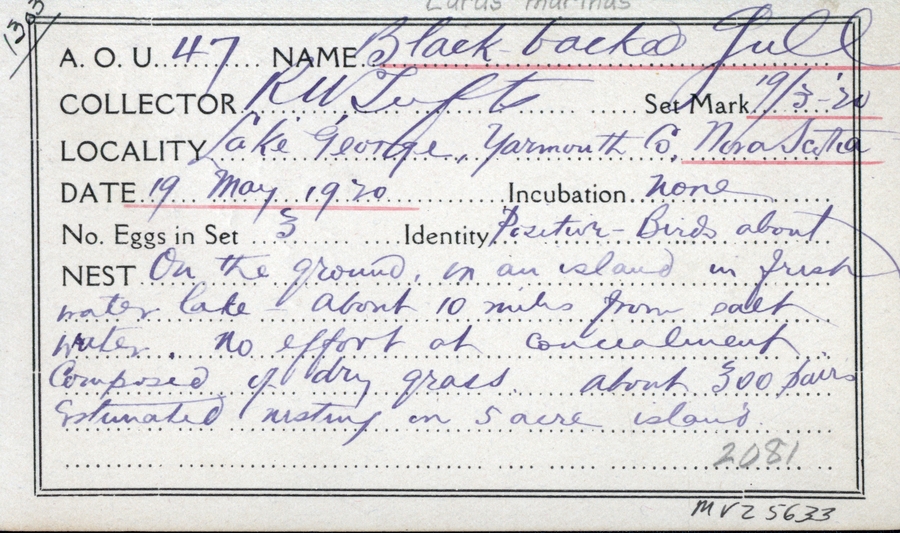 Larus marinus
1303
A. O. U. 47 NAME Black-backed Gull
COLLECTOR R W Tufts Set Mark 19/3-'20
LOCALITY Lake George, Yarmouth Co, Nova Scotia
DATE 19 May 1920 Incubation none
No. Eggs in Set 3 Identity Positive - Birds about
NEST On the ground, on an island in fresh
water lake - about 10 miles from salt
water. no effort at concealment
Composed of dry grass. about 300 pairs
Estimated nesting on 5 acre island.
2081
MVZ 5633